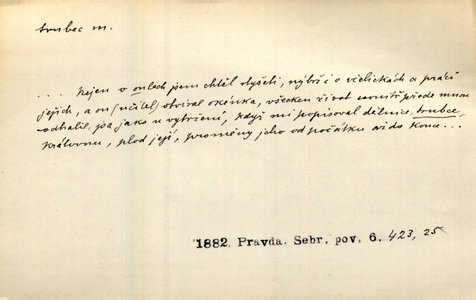 trubec m.
.... Nejen o oulech jsem chtěl slyšeti, nýbrž i o včeličkách a práci
jejich, a on (učitel) otvíral okénka, všecken život uvnitř přede mnou
odhalil, já jako u vytržení, když mi popisoval dělnice, trubce,
královnu, plod její, proměny jeho od počátku až do konce...
1882. Pravda. Sebr. pov. 6. 423, 25